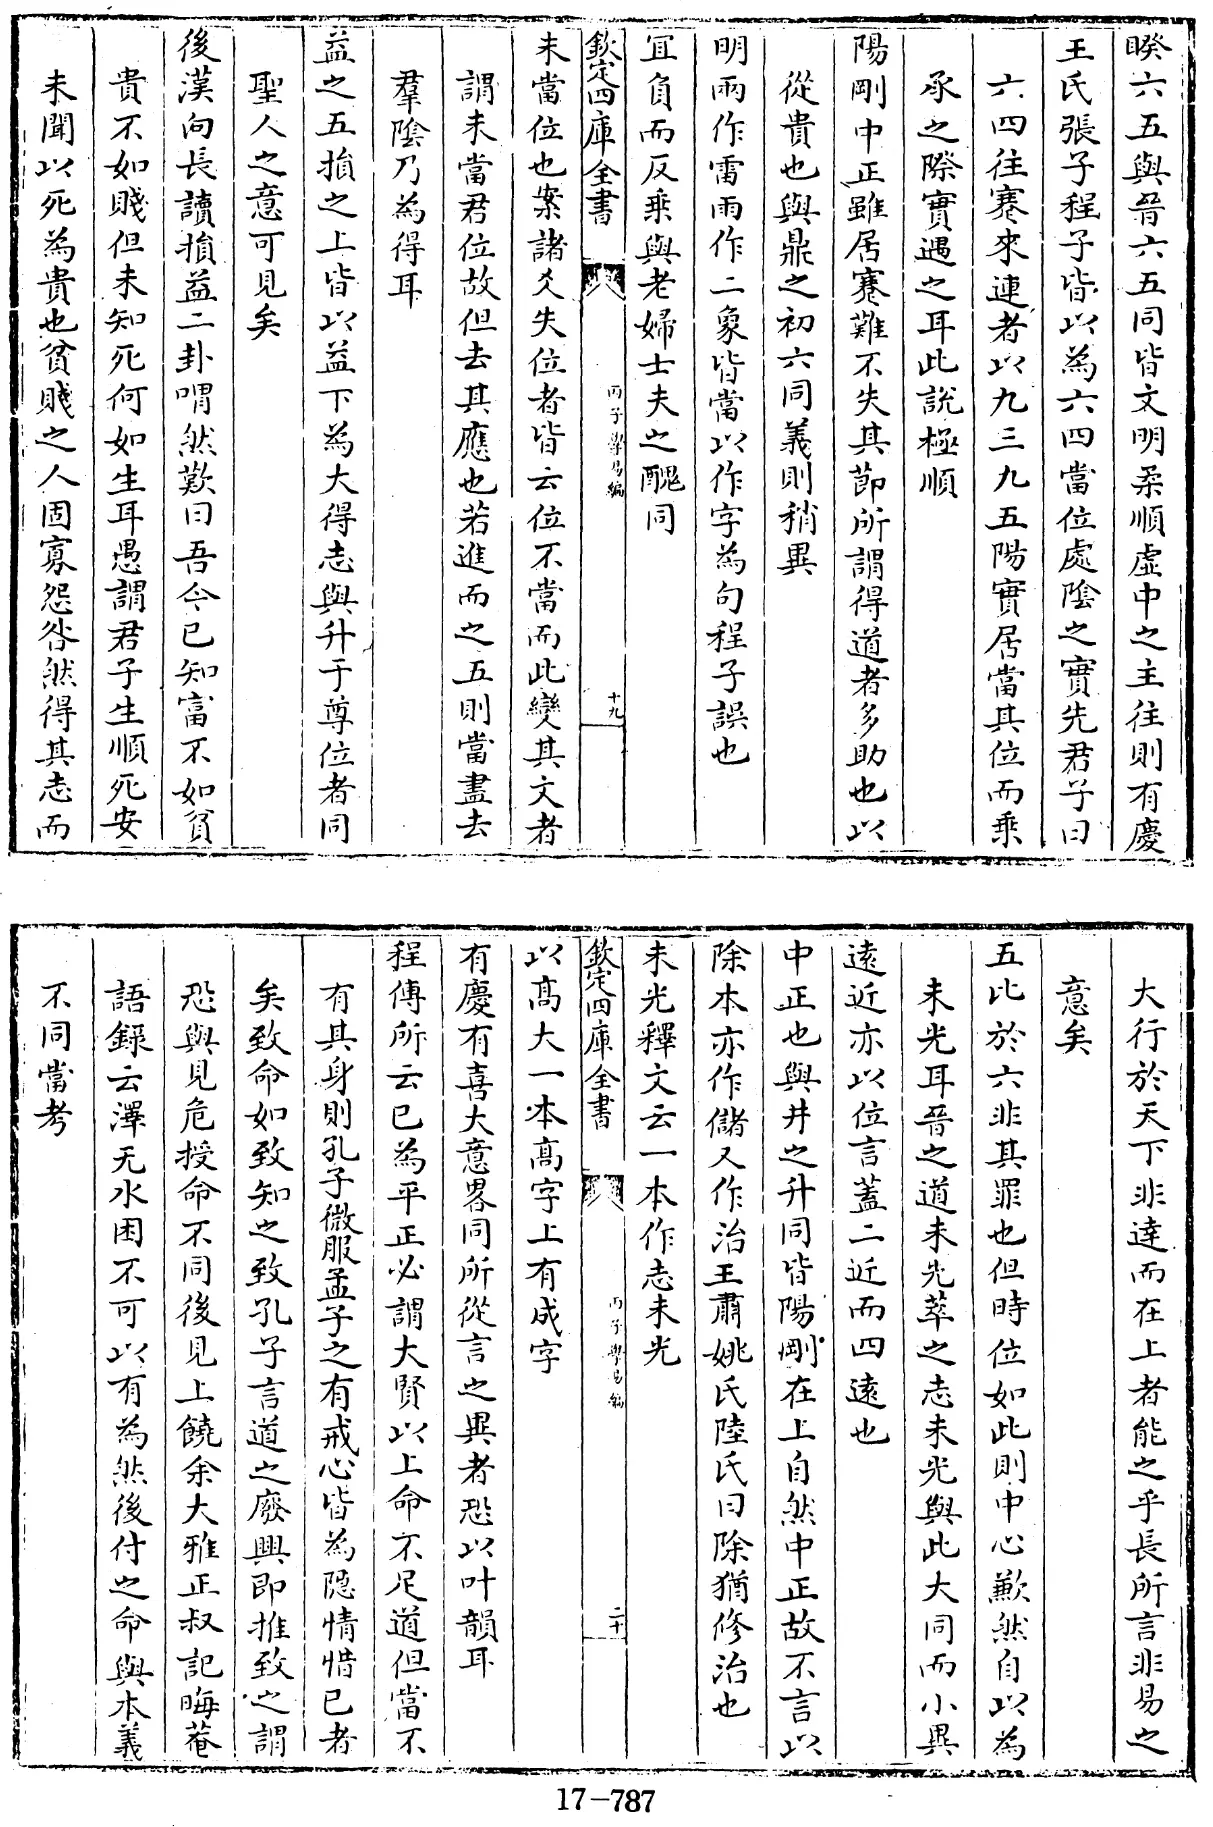 睽六五與晉六五同皆文明柔順虛中之主往則有慶
王氏張子程子皆以為六四當位處陰之實先君子曰
六四往蹇來連者以九三九五陽實居當其位而乗
承之際實遇之耳此說極順
陽剛中正雖居蹇難不失其節所謂得道者多助也以
從貴也與鼎之初六同義則稍異
明兩作雷雨作二象皆當以作字為句程子誤也
宜負而反乗與老婦士夫之醜同
欽定四庫全書
丙子學易編
十九
未當位也案諸爻失位者皆云位不當而此變其文者
謂未當君位故但去其應也若進而之五則當盡去
羣陰乃為得耳
益之五損之上皆以益下為大得志與升于尊位者同
聖人之意可見矣
後漢向長讀損益二卦喟然歎曰吾今已知富不如貧
貴不如賤但未知死何如生耳愚謂君子生順死安
未聞以死為貴也貧賤之人固寡怨咎然得其志而
大行於天下非達而在上者能之乎長所言非易之
意矣
五比於六非其罪也但時位如此則中心歉然自以為
未光耳晉之道未光萃之志未光與此大同而小異
遠近亦以位言蓋二近而四遠也
中正也與井之升同皆陽剛在上自然中正故不言以
除本亦作儲又作治王肅姚氏陸氏曰除猶修治也
未光釋文云一本作志未光
欽定四庫全書
丙子學易編
二十
以高大一本高字上有成字
有慶有喜大意畧同所從言之異者恐以叶韻耳
程傳所云已為平正必謂大賢以上命不足道但當不
有其身則孔子微服孟子之有戒心皆為隱情惜已者
矣致命如致知之致孔子言道之廢興即推致之謂
恐與見危授命不同後見上饒余大雅正叔記晦菴
語錄云澤无水困不可以有為然後付之命與本義
不同當考
17-787